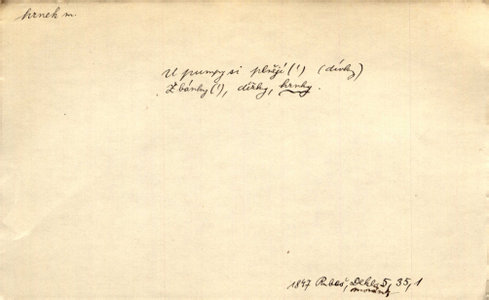 hrnek m.
U pumpy si plnějí (!) (dívky)
Žbánky (!), dížky, hrnky.
1847 Rubeš, Dekla 5, 35, 1